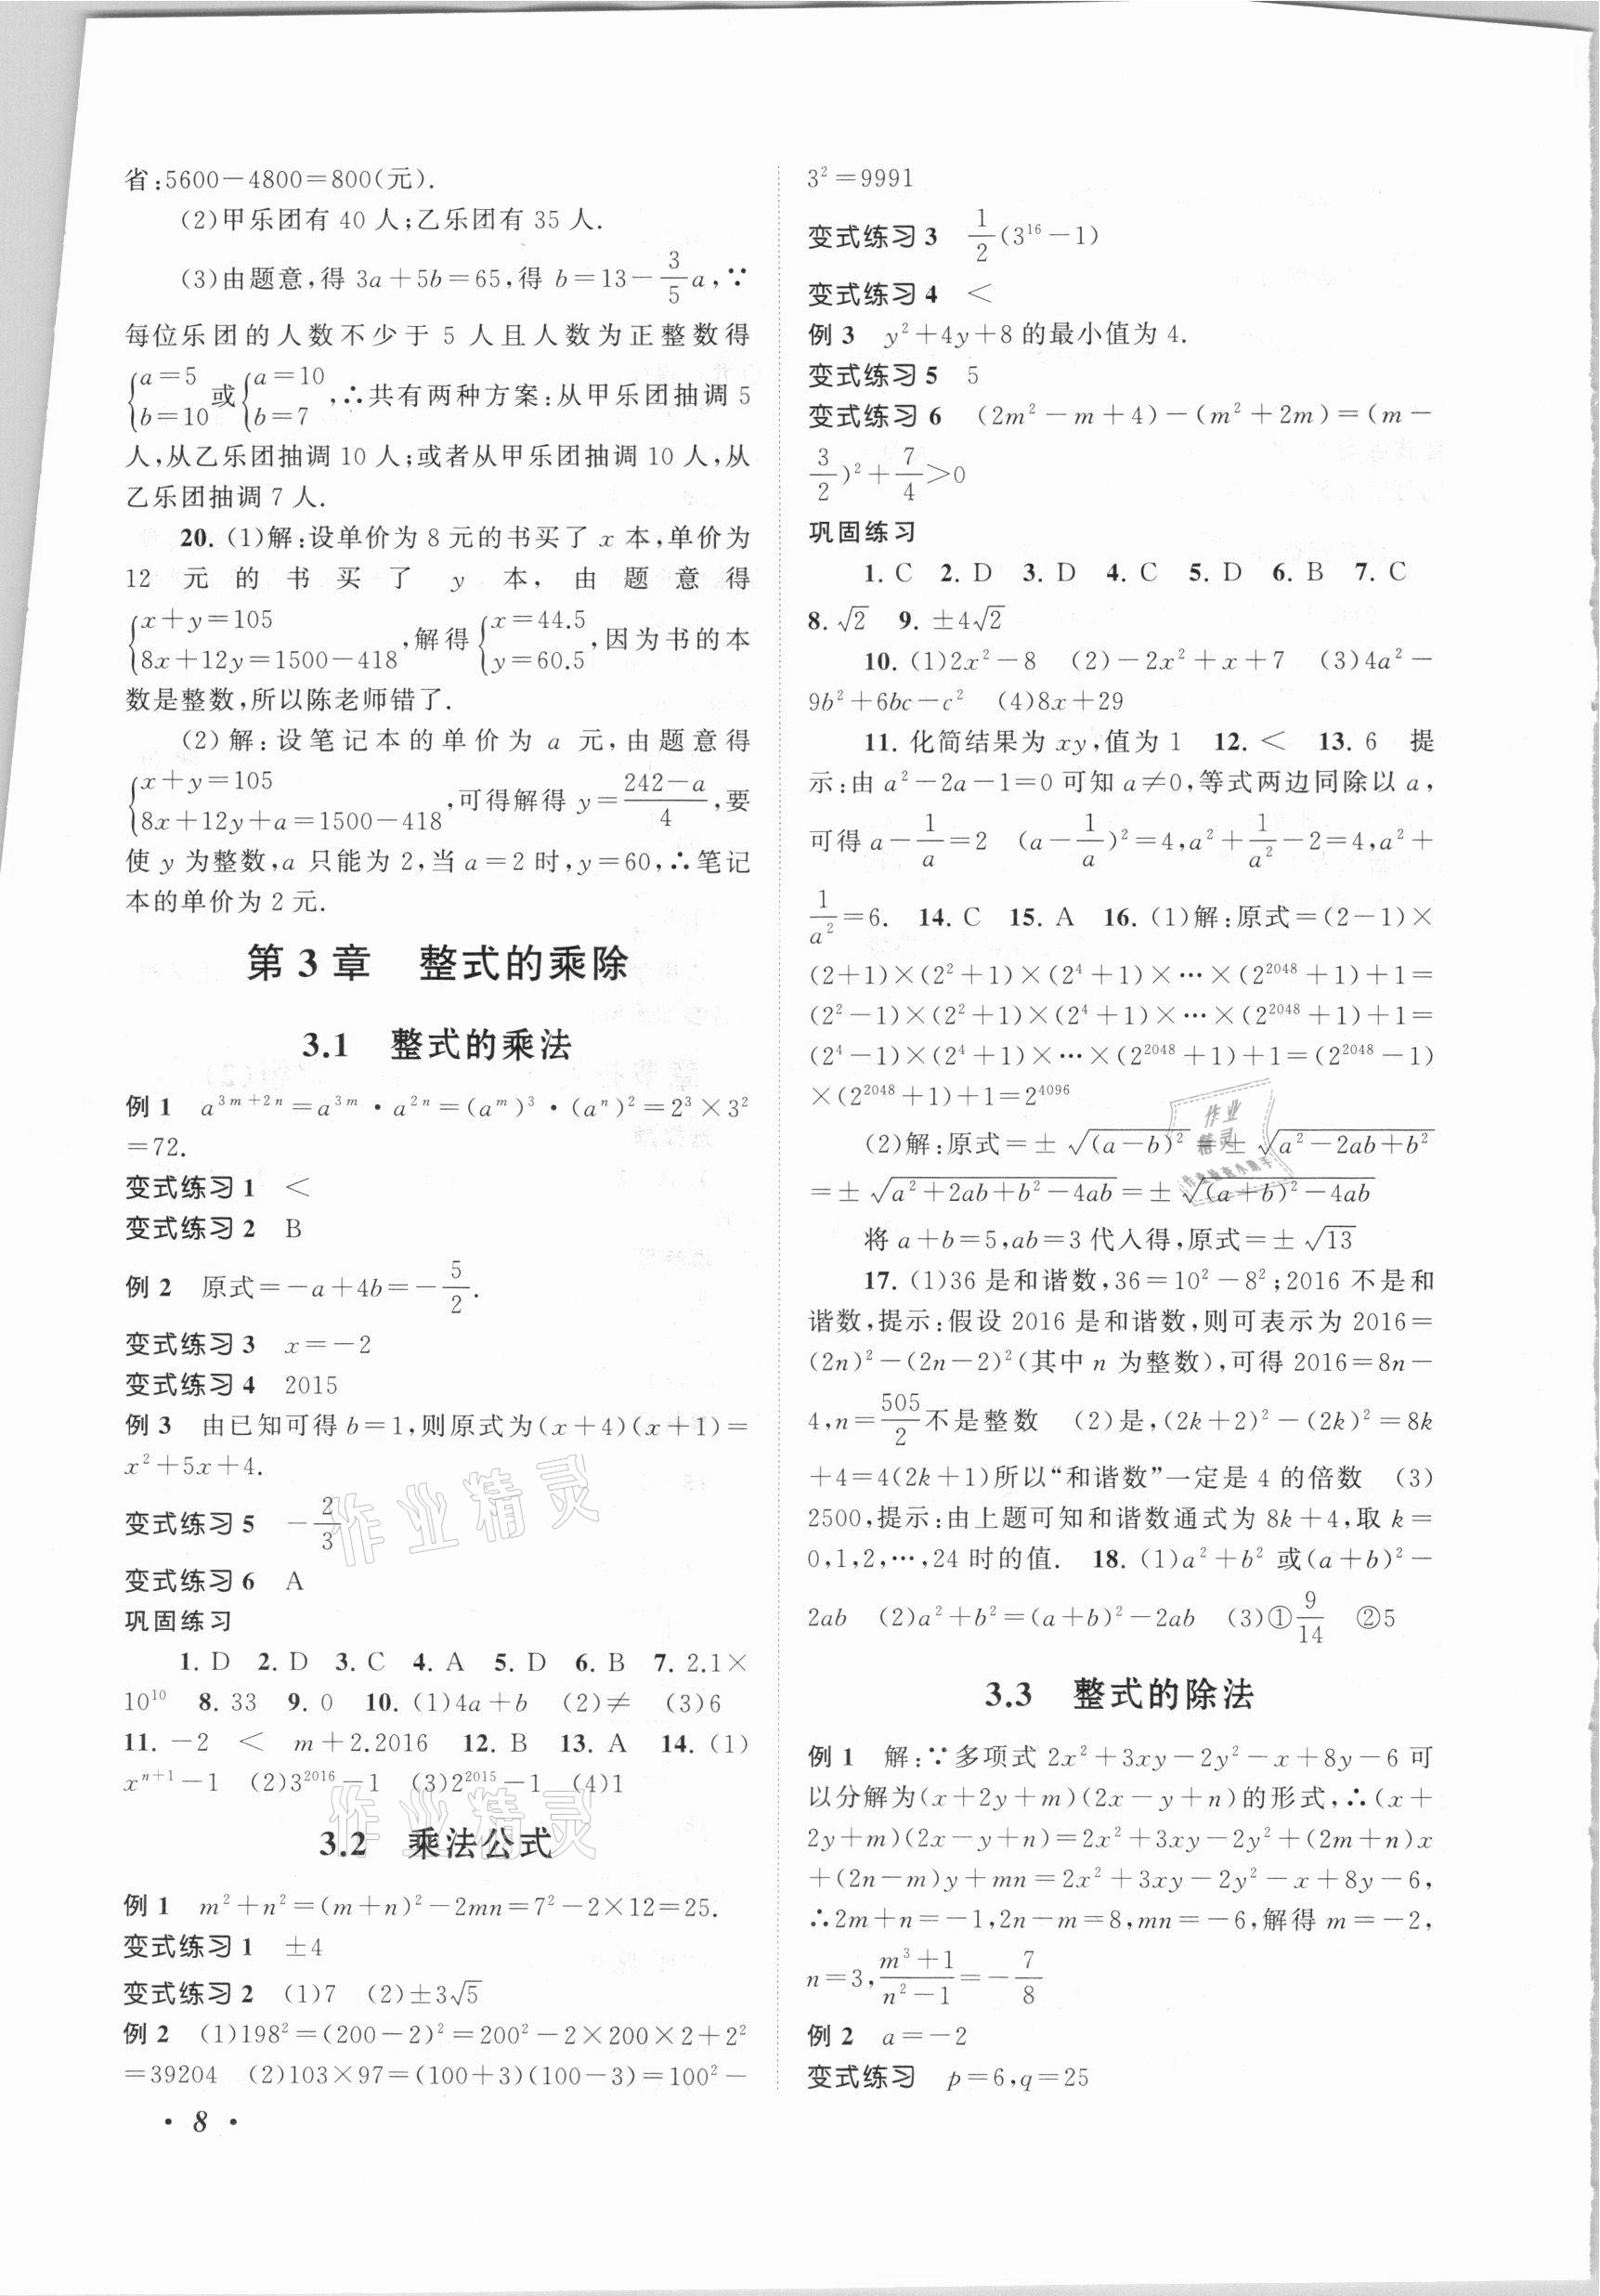 省:5600－4800＝800(元).
(2)甲乐团有 40 人;乙乐团有 35 人.
(3)由题意,得 3a＋5b＝65,得 b＝13－3/5a,∵
每位乐团的人数不少于 5 人且人数为正整数得
{a＝5 b＝10 或 {a＝10 b＝7 ,∴共有两种方案:从甲乐团抽调 5
人,从乙乐团抽调 10 人;或者从甲乐团抽调 10 人,从
乙乐团抽调 7 人.
20. (1)解:设单价为 8 元的书买了 x 本,单价为
12 元的书买了 y 本,由题意得
{x＋y＝105 8x＋12y＝1500－418 ,解得 {x＝44.5 y＝60.5 ,因为书的本
数是整数,所以陈老师错了.
(2)解:设笔记本的单价为 a 元,由题意得
{x＋y＝105 8x＋12y＋a＝1500－418 ,可得解得 y＝(242－a)/4,要
使 y 为整数,a 只能为 2,当 a＝2 时,y＝60,∴笔记
本的单价为 2 元.
第 3 章 整式的乘除
3.1 整式的乘法
例 1 a³ᵐ⁺²ⁿ＝a³ᵐ·a²ⁿ＝(aᵐ)³·(aⁿ)²＝2³×3²
＝72.
变式练习 1 ＜
变式练习 2 B
例 2 原式＝－a＋4b＝－5/2.
变式练习 3 x＝－2
变式练习 4 2015
例 3 由已知可得 b＝1,则原式为(x＋4)(x＋1)＝
x²＋5x＋4.
变式练习 5 －2/3
变式练习 6 A
巩固练习
1. D 2. D 3. C 4. A 5. D 6. B 7. 2.1×
10¹⁰ 8. 33 9. 0 10. (1)4a＋b (2)≠ (3)6
11. －2 ＜ m＋2.2016 12. B 13. A 14. (1)
xⁿ⁺¹－1 (2)3²⁰¹⁶－1 (3)2²⁰¹⁵－1 (4)1
3.2 乘法公式
例 1 m²＋n²＝(m＋n)²－2mn＝7²－2×12＝25.
变式练习 1 ±4
变式练习 2 (1)7 (2)±3√5
例 2 (1)198²＝(200－2)²＝200²－2×200×2＋2²
＝39204 (2)103×97＝(100＋3)(100－3)＝100²－
· 8 ·
3²＝9991
变式练习 3 1/2(3¹⁶－1)
变式练习 4 ＜
例 3 y²＋4y＋8 的最小值为 4.
变式练习 5 5
变式练习 6 (2m²－m＋4)－(m²＋2m)＝(m－
3/2)²＋7/4＞0
巩固练习
1. C 2. D 3. D 4. C 5. D 6. B 7. C
8. √2 9. ±4√2
10. (1)2x²－8 (2)－2x²＋x＋7 (3)4a²－
9b²＋6bc－c² (4)8x＋29
11. 化简结果为 xy,值为 1 12. ＜ 13. 6 提
示:由 a²－2a－1＝0 可知 a≠0,等式两边同除以 a,
可得 a－1/a＝2 (a－1/a)²＝4,a²＋1/a²－2＝4,a²＋
1/a²＝6. 14. C 15. A 16. (1)解:原式＝(2－1)×
(2＋1)×(2²＋1)×(2⁴＋1)×…×(2²⁰⁴⁸＋1)＋1＝
(2²－1)×(2²＋1)×(2⁴＋1)×…×(2²⁰⁴⁸＋1)＋1＝
(2⁴－1)×(2⁴＋1)×…×(2²⁰⁴⁸＋1)＋1＝(2²⁰⁴⁸－1)
×(2²⁰⁴⁸＋1)＋1＝2⁴⁰⁹⁶
(2)解:原式＝±√((a－b)²)＝±√(a²－2ab＋b²)
＝±√(a²＋2ab＋b²－4ab)＝±√((a＋b)²－4ab)
将 a＋b＝5,ab＝3 代入得,原式＝±√13
17. (1)36 是和谐数,36＝10²－8²;2016 不是和
谐数,提示:假设 2016 是和谐数,则可表示为 2016＝
(2n)²－(2n－2)²(其中 n 为整数),可得 2016＝8n－
4,n＝505/2不是整数 (2)是,(2k＋2)²－(2k)²＝8k
＋4＝4(2k＋1)所以“和谐数”一定是 4 的倍数 (3)
2500,提示:由上题可知和谐数通式为 8k＋4,取 k＝
0,1,2,…,24 时的值. 18. (1)a²＋b² 或(a＋b)²－
2ab (2)a²＋b²＝(a＋b)²－2ab (3)①9/14 ②5
3.3 整式的除法
例 1 解:∵多项式 2x²＋3xy－2y²－x＋8y－6 可
以分解为(x＋2y＋m)(2x－y＋n)的形式,∴(x＋
2y＋m)(2x－y＋n)＝2x²＋3xy－2y²＋(2m＋n)x
＋(2n－m)y＋mn＝2x²＋3xy－2y²－x＋8y－6,
∴2m＋n＝－1,2n－m＝8,mn＝－6,解得 m＝－2,
n＝3,(m³＋1)/(n²－1)＝－7/8
例 2 a＝－2
变式练习 p＝6,q＝25
作业精灵
作业精灵
作业
精灵
作业检查小助手